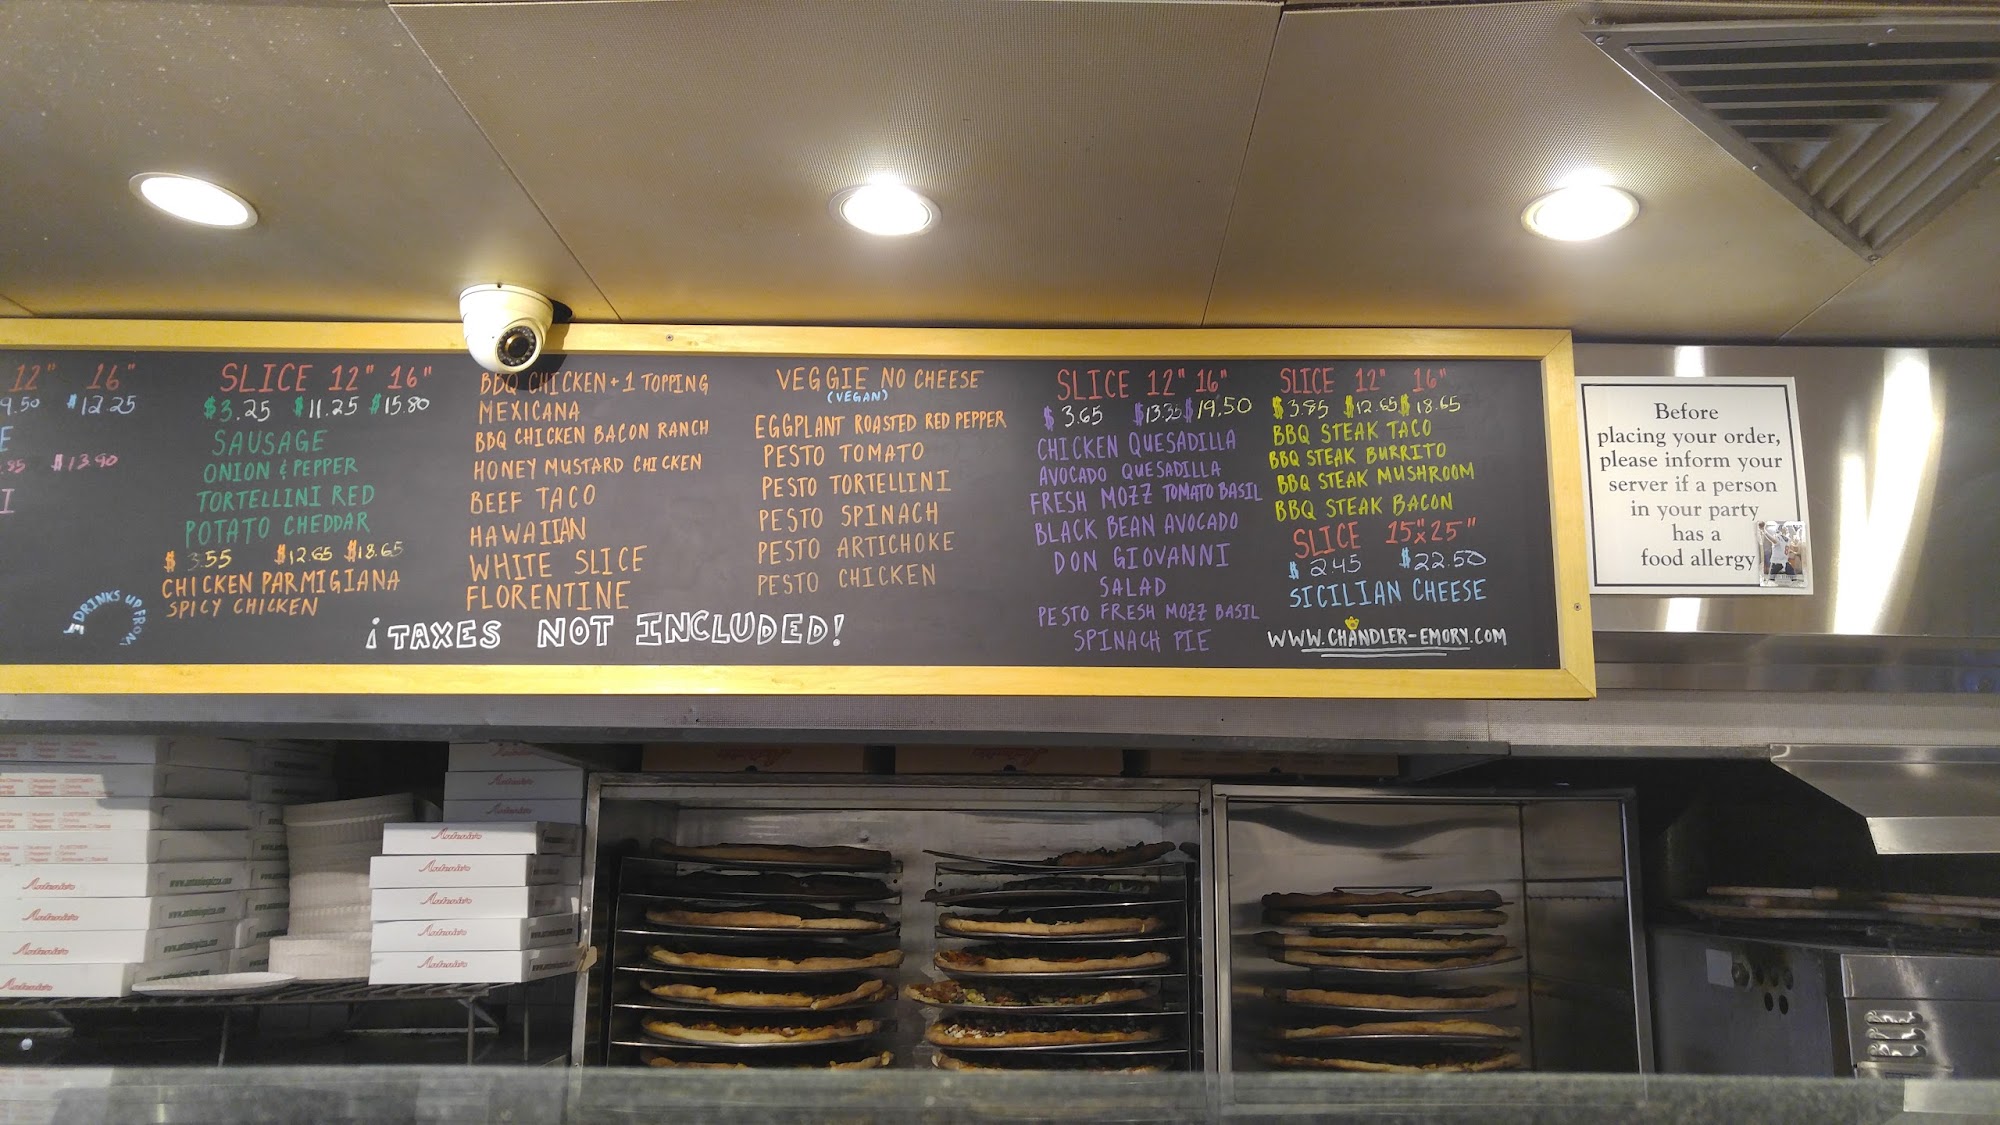 12" 16"
9.50 $12.25
E
.85 $13.90
I
DRINKS UP FROM!
SLICE 12" 16"
$3.25 $11.25 $15.80
SAUSAGE
ONION & PEPPER
TORTELLINI RED
POTATO CHEDDAR
$3.55 $12.65 $18.65
CHICKEN PARMIGIANA
SPICY CHICKEN
BBQ CHICKEN + 1 TOPPING
MEXICANA
BBQ CHICKEN BACON RANCH
HONEY MUSTARD CHICKEN
BEEF TACO
HAWAIIAN
WHITE SLICE
FLORENTINE
¡TAXES NOT INCLUDED!
VEGGIE NO CHEESE
(VEGAN)
EGGPLANT ROASTED RED PEPPER
PESTO TOMATO
PESTO TORTELLINI
PESTO SPINACH
PESTO ARTICHOKE
PESTO CHICKEN
SLICE 12" 16"
$3.65 $13.35 $19.50
CHICKEN QUESADILLA
AVOCADO QUESADILLA
FRESH MOZZ TOMATO BASIL
BLACK BEAN AVOCADO
DON GIOVANNI
SALAD
PESTO FRESH MOZZ BASIL
SPINACH PIE
SLICE 12" 16"
$3.85 $12.65 $18.65
BBQ STEAK TACO
BBQ STEAK BURRITO
BBQ STEAK MUSHROOM
BBQ STEAK BACON
SLICE 15"x25"
$2.45 $22.50
SICILIAN CHEESE
WWW.CHANDLER-EMORY.COM
Before
placing your order,
please inform your
server if a person
in your party
has a
food allergy
Antonio's
Antonio's
Antonio's
Antonio's
Antonio's
Antonio's
Antonio's
Antonio's
Antonio's